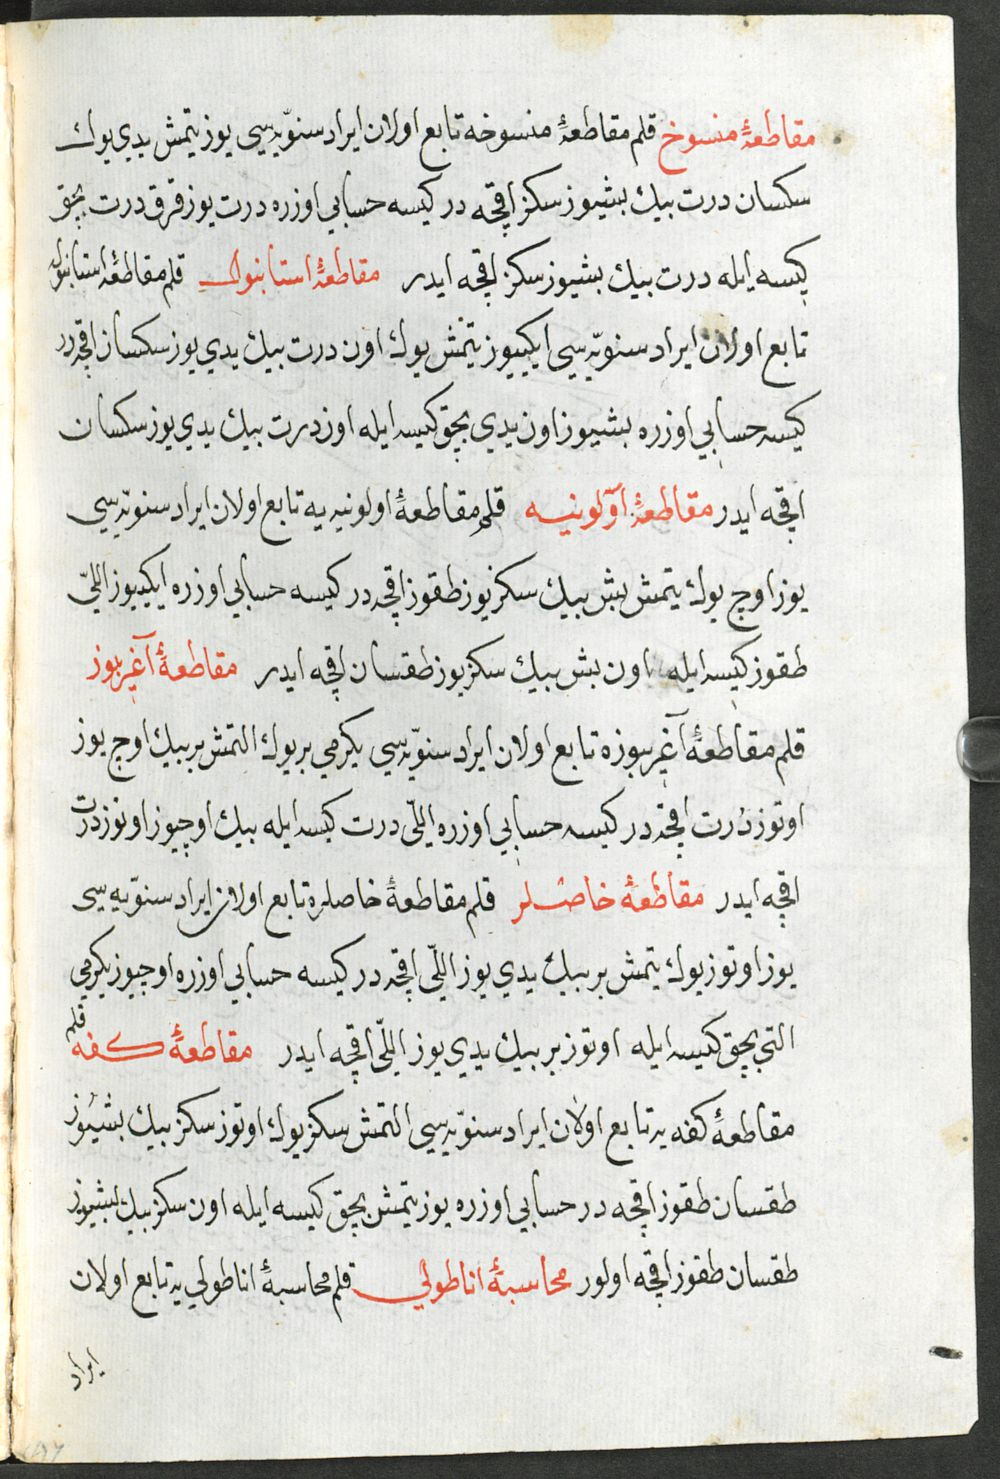 مقاطعۀ منسوخ قلم مقاطعۀ منسوخه تابع اولان ايراد سنويّه سی يوز يتمش يدی يوك
سكسان درت بيك بشيوز سكز اقچه در كيسه حسابی اوزره درت يوز قرق درت بچق
كيسه ايله درت بيك بشيوز سكز اقچه ايدر مقاطعۀ استانبول قلم مقاطعۀ استانبوله
تابع اولان ايراد سنويّه سی ايكييوز يتمش يوك اون درت بيك يدی يوز سكسان اقچه در
كيسه حسابی اوزره بشيوز اون يدی بچق كيسه ايله اوندرت بيك يدی يوز سكسان
اقچه ايدر مقاطعۀ اوّلونيه قلم مقاطعۀ اولونيه يه تابع اولان ايراد سنويّه سی
يوز اوچ يوك يتمش بش بيك سكز يوز طقوز اقچه در كيسه حسابی اوزره ايكييوز اللّی
طقوز كيسه ايله اون بش بيك سكز يوز طقسان اقچه ايدر مقاطعۀ آغريبوز
قلم مقاطعۀ آغريبوزه تابع اولان ايراد سنويّه سی يكرمی بر يوك التمش بر بيك اوچ يوز
اوتوز درت اقچه در كيسه حسابی اوزره اللّی درت كيسه ايله بيك اوچيوز اوتوز درت
اقچه ايدر مقاطعۀ خاصلر قلم مقاطعۀ خاصلره تابع اولان ايراد سنويّه سی
يوز اوتوز يوك يتمش بر بيك يدی يوز اللّی اقچه در كيسه حسابی اوزره اوچيوز يكرمی
التی بچق كيسه ايله اوتوز بر بيك يدی يوز اللّی اقچه ايدر مقاطعۀ كفه قلم
مقاطعۀ كفه يه تابع اولان ايراد سنويّه سی التمش سكز يوك اوتوز سكز بيك بشيوز
طقسان طقوز اقچه در حسابی اوزره يوز يتمش بچق كيسه ايله اون سكز بيك بشيوز
طقسان طقوز اقچه اولور محاسبۀ اناطولی قلم محاسبۀ اناطولی يه تابع اولان
ايراد